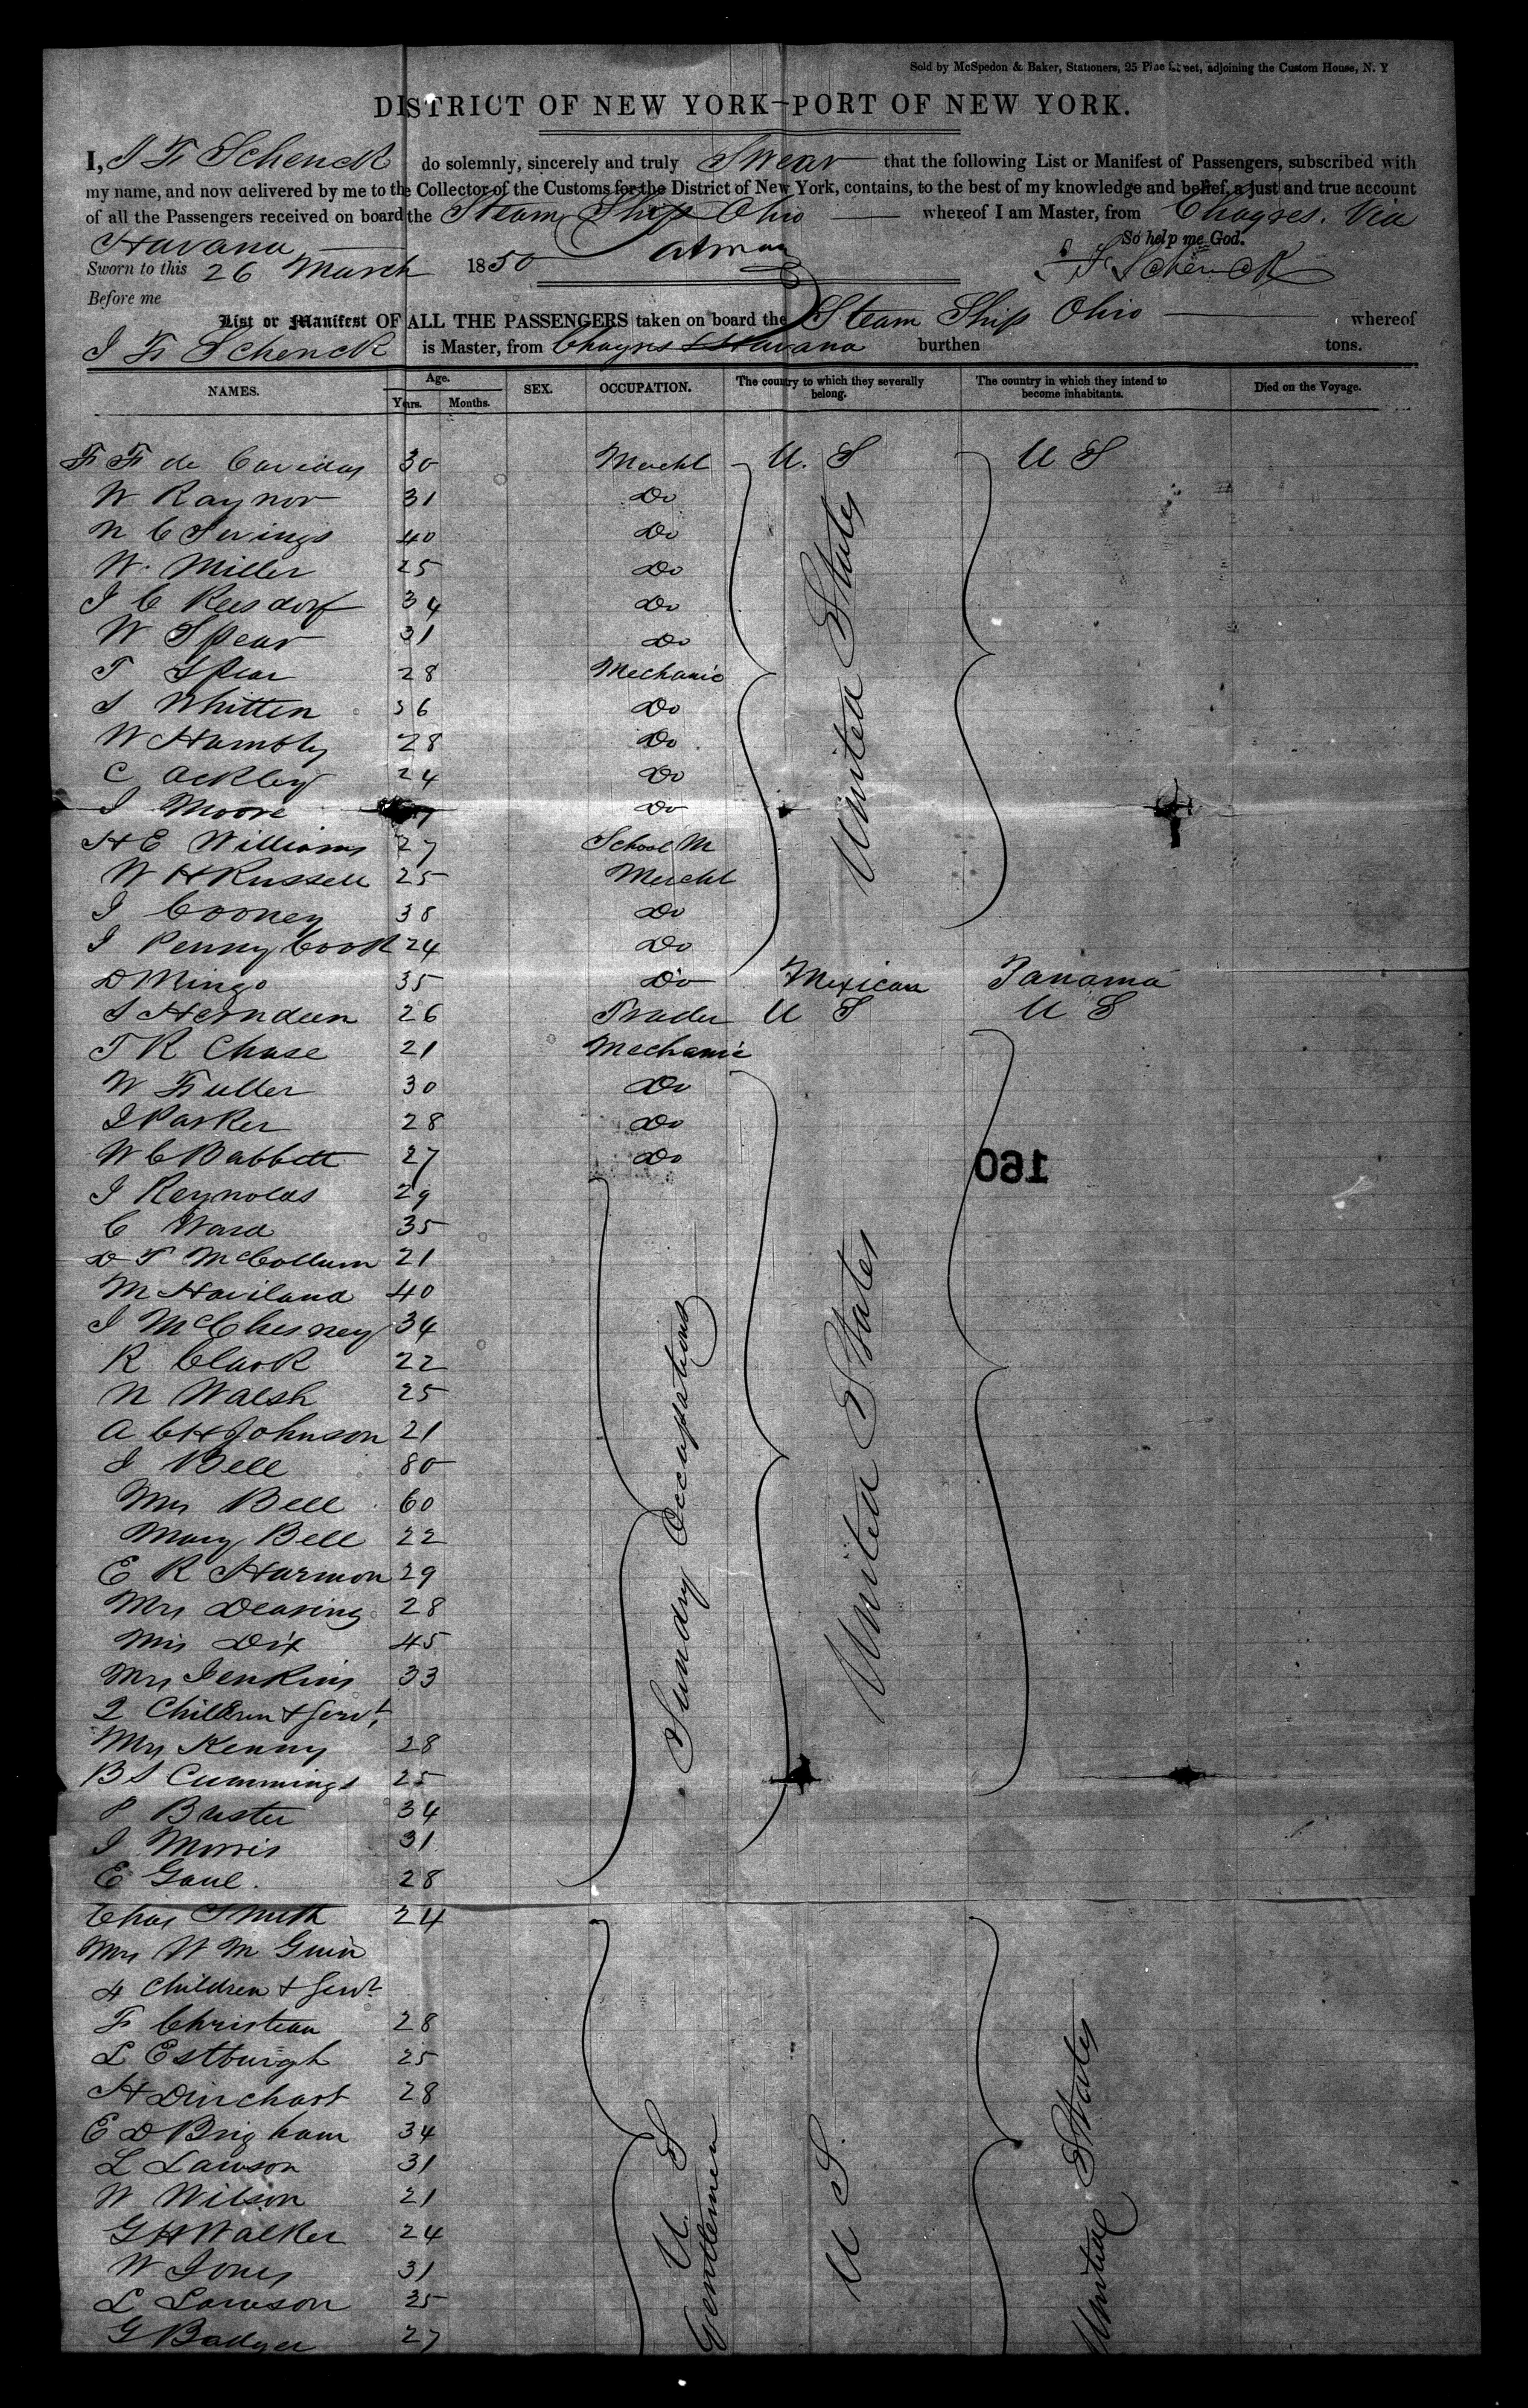 Sold by McSpedon & Baker, Stationers, 25 Pine Street, adjoining the Custom House, N. Y
DISTRICT OF NEW YORK—PORT OF NEW YORK.
I, J F Schenck do solemnly, sincerely and truly Swear that the following List or Manifest of Passengers, subscribed with
my name, and now delivered by me to the Collector of the Customs for the District of New York, contains, to the best of my knowledge and belief, a just and true account
of all the Passengers received on board the Steam Ship Ohio whereof I am Master, from Chagres. Via
Havana So help me God.
Sworn to this 26 March 1850 J F Schenck
Before me
List or Manifest OF ALL THE PASSENGERS taken on board the Steam Ship Ohio whereof
J F Schenck is Master, from Chagres & Havana burthen tons.
NAMES. Age. Years. Months. SEX. OCCUPATION. The country to which they severally belong. The country in which they intend to become inhabitants. Died on the Voyage.
F F de 30 Mercht U. S U S
W Raynor 31 Do
N C 40 Do
W. Miller 25 Do
J C Reesdorf 34 Do
W Spear 31 Do
T Spear 28 Mechanic
S Whitten 36 Do
W Hambly 28 Do
C Ackley 24 Do
J Moore Do
H E Williams 27 School M
W H Russell 25 Mercht
J Cooney 38 Do
J Pennycook 24 Do
United States
D Mingo 35 Do Mexican Panama
S Herndeen 26 Trader U S U S
T R Chase 21 Mechanic
W Fuller 30 Do
J Parker 28 Do
W C Babbett 27 Do
160
J Reynolds 29
C Ward 35
D T McCollum 21
M Haviland 40
J McChesney 34
R Clark 22
N Walsh 25
A C H Johnson 21
J Bell 80
Mrs Bell 60
Mary Bell 22
E R Harmon 29
Mrs Dearing 28
Mrs Dix 45
Mrs Jenkins 33
2 Children & Servt
Mrs Kenny 28
B S Cummings 25
P Buster 34
J Morris 31
E Gaul. 28
Sundry Occupations
United States
Chas Smith 24
Mrs W M Gwin
4 Children & Servt
F Christian 28
L Estburgh 25
H Dinchart 28
E D Brigham 34
L Lawson 31
W Wilson 21
G H Walker 24
W Jones 31
L Lawson 35
G Badger 27
U S
Gentlemen
U S
United States